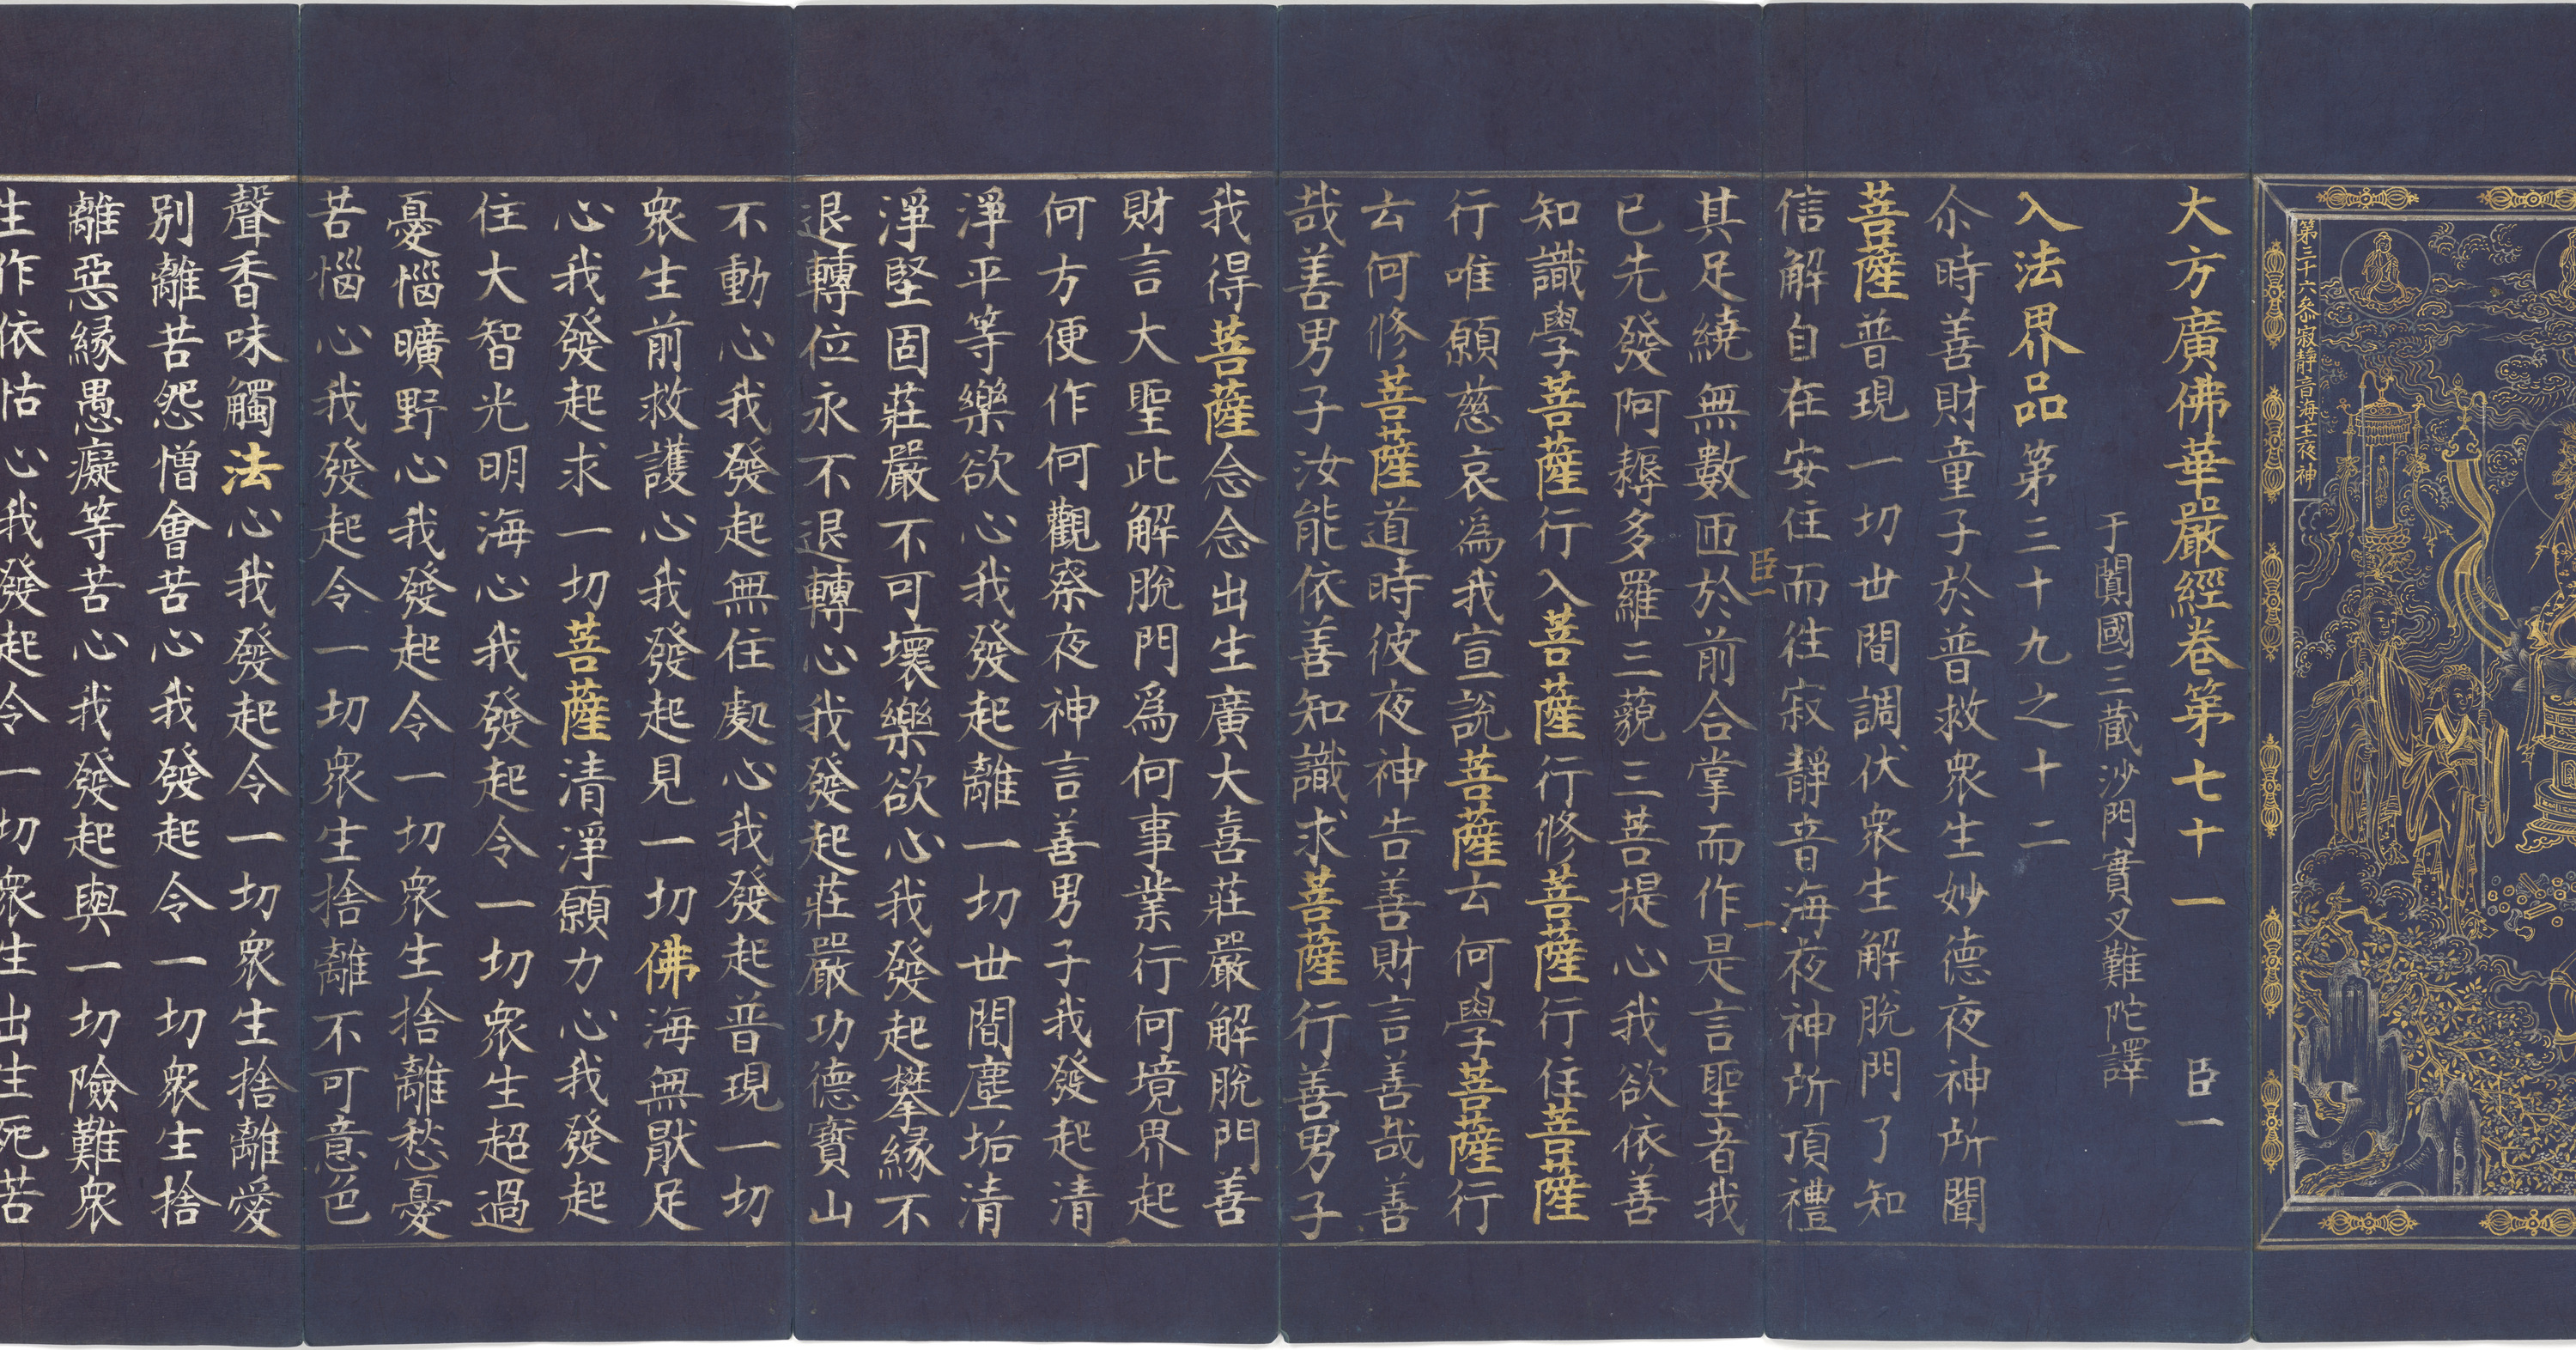 第三十六叅寂靜音海主夜神
大方廣佛華嚴經卷第七十一 臣一
于闐國三藏沙門實叉難陀譯
入法界品第三十九之十二
尒時善財童子於普救衆生妙德夜神所聞
菩薩普現一切世間調伏衆生解脫門了知
信解自在安住而徃寂靜音海夜神所頂禮
臣一 一
其足繞無數匝於前合掌而作是言聖者我
已先發阿耨多羅三藐三菩提心我欲依善
知識學菩薩行入菩薩行修菩薩行住菩薩
行唯願慈哀爲我宣說菩薩云何學菩薩行
云何修菩薩道時彼夜神告善財言善哉善
哉善男子汝能依善知識求菩薩行善男子
我得菩薩念念出生廣大喜莊嚴解脫門善
財言大聖此解脫門爲何事業行何境界起
何方便作何觀察夜神言善男子我發起清
淨平等樂欲心我發起離一切世間塵垢清
淨堅固莊嚴不可壞樂欲心我發起攀緣不
退轉位永不退轉心我發起莊嚴功德寶山
不動心我發起無住處心我發起普現一切
衆生前救護心我發起見一切佛海無猒足
心我發起求一切菩薩清淨願力心我發起
住大智光明海心我發起令一切衆生超過
憂惱曠野心我發起令一切衆生捨離愁憂
苦惱心我發起令一切衆生捨離不可意色
聲香味觸法心我發起令一切衆生捨離愛
別離苦怨憎會苦心我發起令一切衆生捨
離惡緣愚癡等苦心我發起與一切險難衆
生作依怙心我發起令一切衆生出生死苦